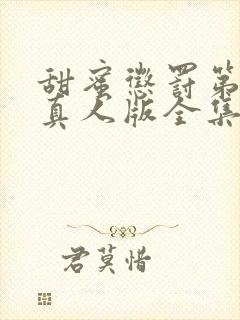 甜蜜懲罰第
真人版全集
君莫惜